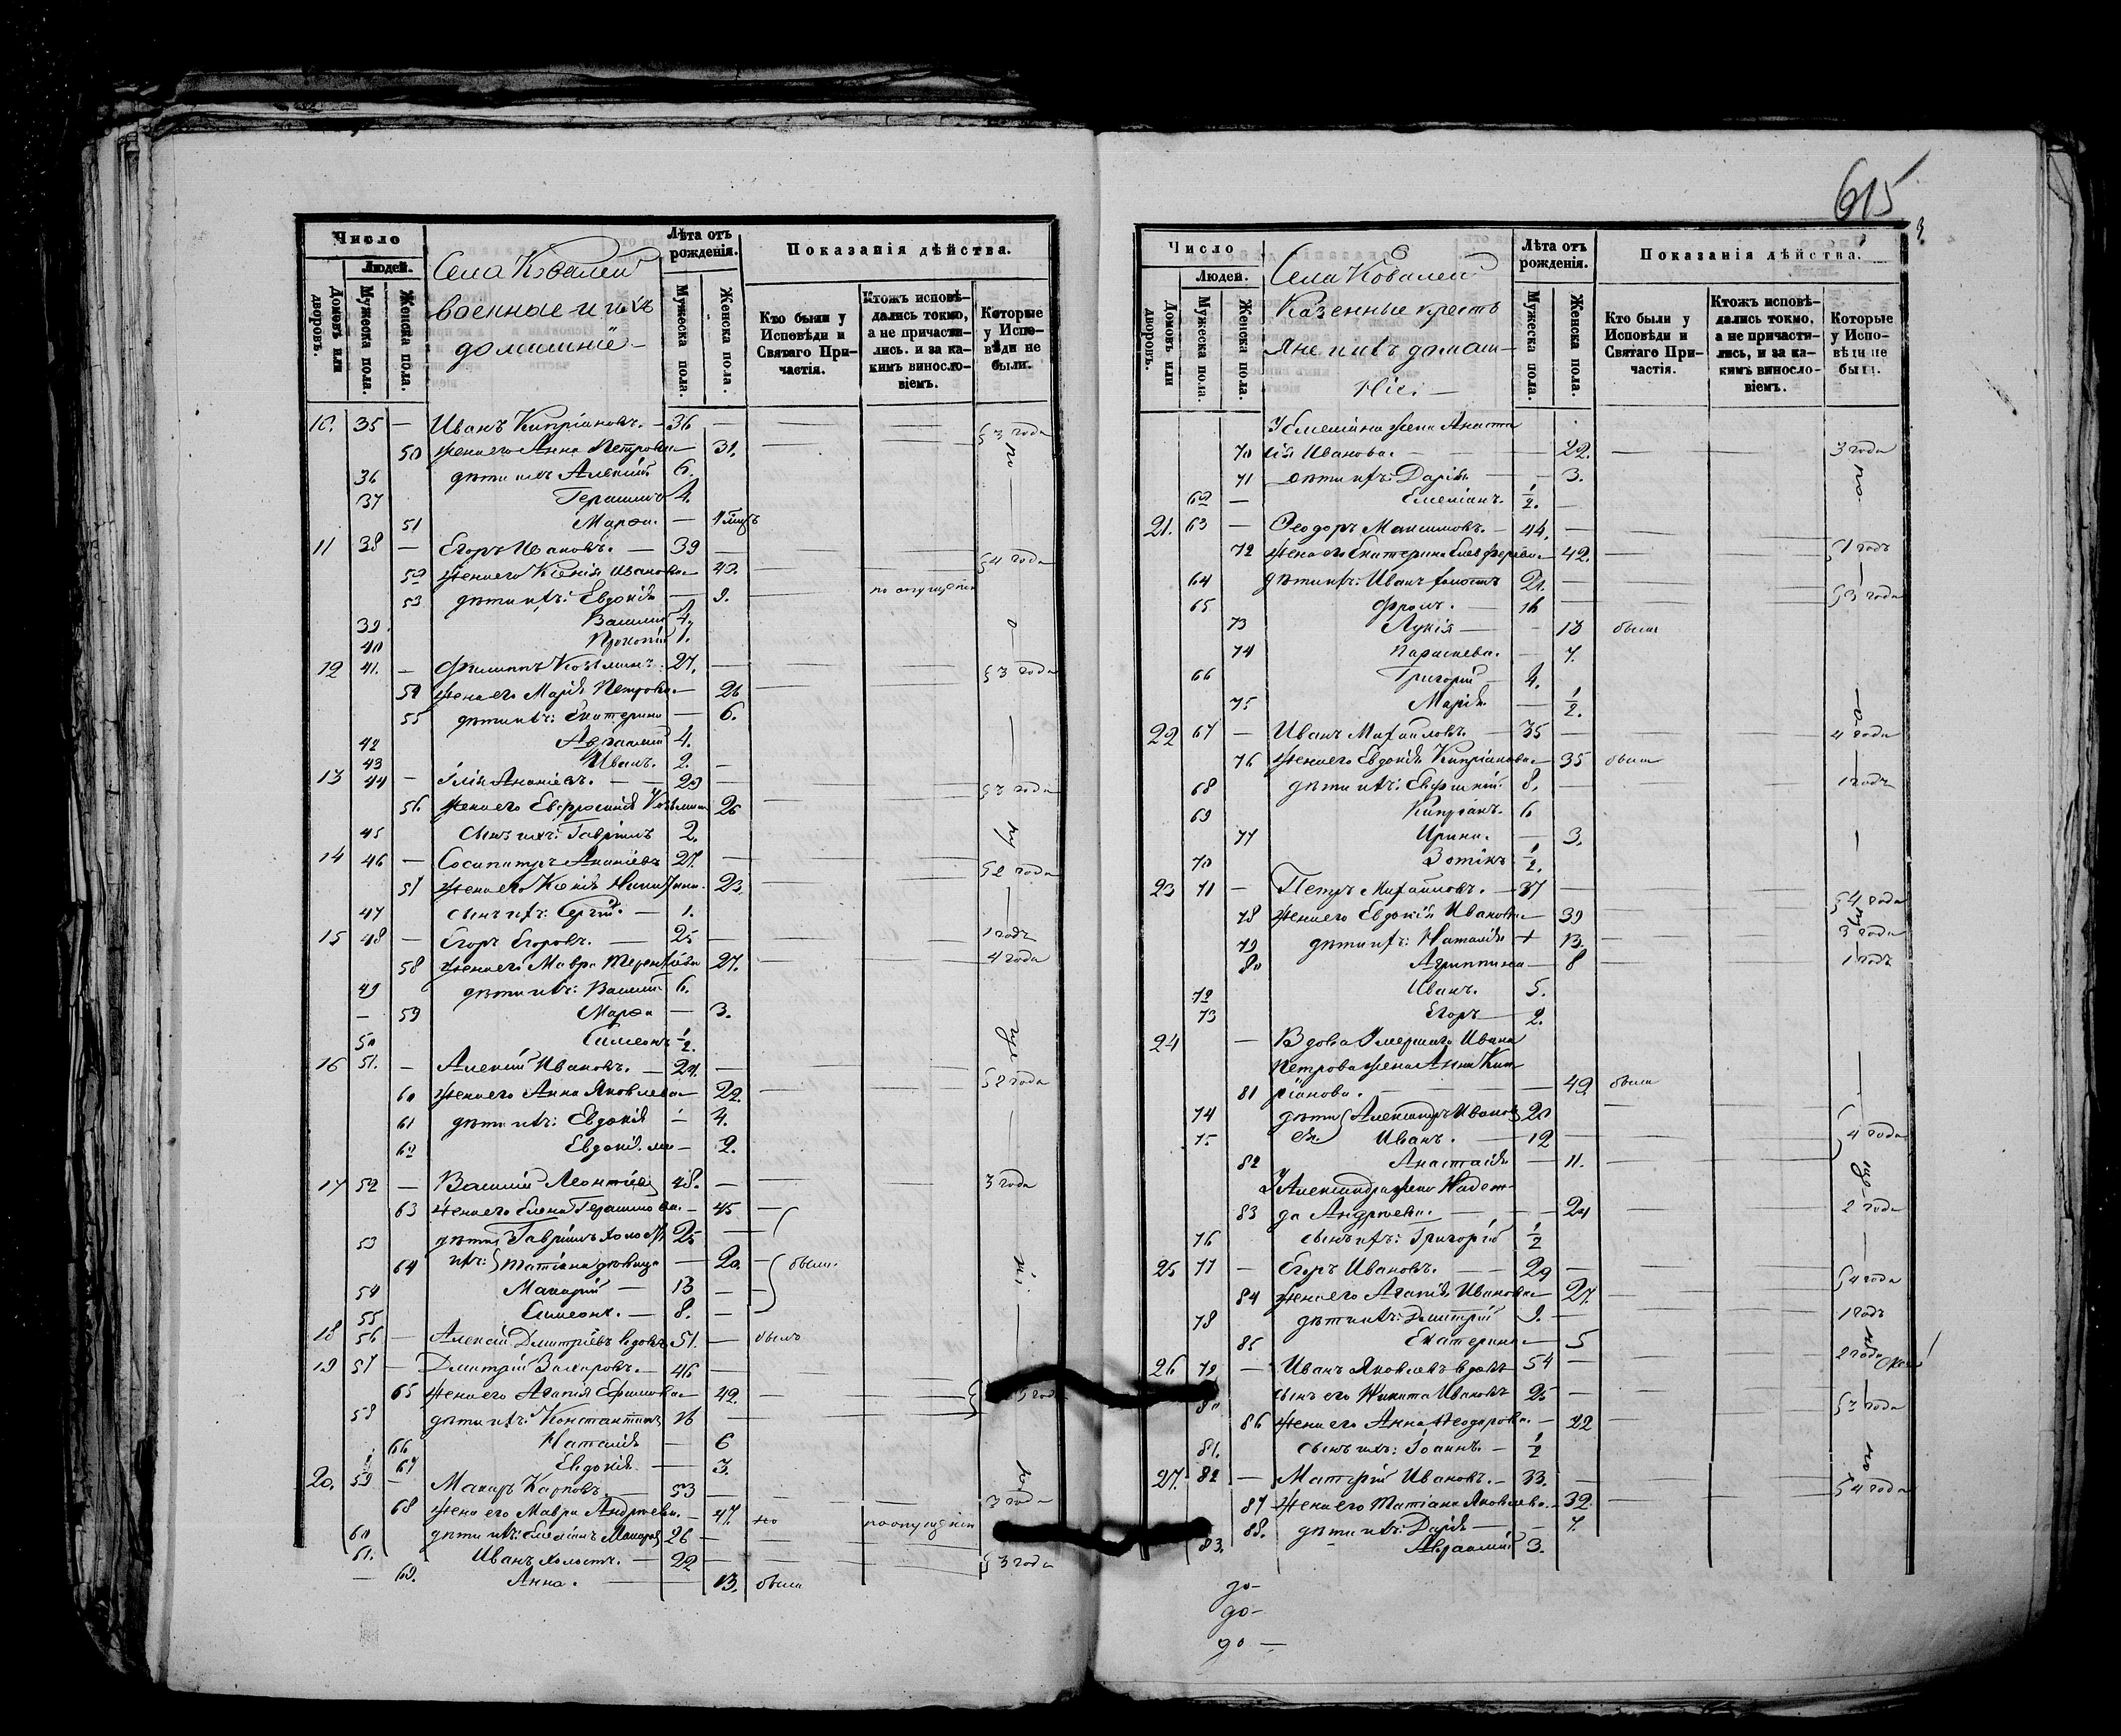 615
Число
Людей.
Домовъ или дворовъ.
Мужеска пола.
Женска пола.
Села Ковалей
военные и ихъ
домашніе
Лѣта отъ рожденія.
Мужеска пола.
Женска пола.
Показанія дѣйства.
Кто были у Исповѣди и Святаго Причастія.
Ктожъ исповѣдались токмо, а не причастились. и за какимъ винословіемъ.
Которые у Исповѣди не были.
10. 35 — Иванъ Кипріановъ. — 36 —
50 жена его Анна Петрова — 31. — 3 года
36 дѣти ихъ Алексій 6.
37 Герасимъ 4.
51 Марѳа. —
11 38 — Егоръ Ивановъ. — 39 —
52 жена его Ксенія Иванова 42. — 4 года
53 дѣти ихъ: Евдокія — 9. — по опущенію
39. Василій 4.
40 Прокопій 1.
12 41. — Филиппъ Козьминъ. 27. —
54 жена его Марія Петрова — 26 — 3 года
55 дѣти ихъ: Екатерина — 6.
42 Авраамій 4.
43 Иванъ. 2. —
13 44 — Илія Ананіевъ. — 29 —
56. жена его Евфросинія Козьмина 26 — 3 года
45 сынъ ихъ: Гавріилъ 2.
14 46 — Сосипатръ Ананіевъ 27. —
57 жена его Ксенія 23. — 2 года
47 сынъ ихъ: Сергій. — 1.
15 48 — Егоръ Егоровъ. — 25 — 1 годъ
58 жена его Мавра Терентіева 27. — 4 года
49 дѣти ихъ: Василій 6.
— 59 Марѳа — 3.
50 Симеонъ 1/2.
16 51. — Алексій Ивановъ. — 24. —
60 жена его Анна Яковлева — 22. — 2 года
61 дѣти ихъ: Евдокія — 4.
62 Евдокія — 2.
17 52 — Василій Леонтіевъ 48. — 3 года
63 жена его Елена Герасимова. — 45 —
53 дѣти Гавріилъ холостъ 25 —
64 ихъ: Татіана дѣвица — 20. — были.
54 Макарій — 13 —
55 Симеонъ. — 8. —
18 56 — Алексій Дмитріевъ вдовъ 51. — былъ
19 57 — Дмитрій Захаровъ. — 46 —
65 жена его Агапія Ефимова — 42. — 3 года
58 дѣти ихъ: Константинъ 16 —
66 Наталія — 6
67 Евдокія — 3.
20. 59 — Макаръ Карповъ. — 53 — 3 года
68 жена его Мавра Андреева. — 47. по опущенію
60 дѣти ихъ: Емеліанъ Макаровъ 26 —
61. Иванъ холостъ. — 22 — 3 года
— 69. Анна. — 13. была
Число
Людей.
Домовъ или дворовъ.
Мужеска пола.
Женска пола.
Села Ковалей
Казенные кресть
яне и ихъ домаш-
ніе:
Лѣта отъ рожденія.
Мужеска пола.
Женска пола.
Показанія дѣйства.
Кто были у Исповѣди и Святаго Причастія.
Ктожъ исповѣдались токмо, а не причастились, и за какимъ винословіемъ.
Которые у Исповѣди не были.
У Емеліана жена Анаста
70 сія Иванова. — 22. — 3 года
71 дѣти ихъ: Дарія — 3.
62 — Емеліанъ. 1/2. —
21. 63 — Ѳеодоръ Максимовъ. — 44. —
72 жена его Екатерина Елевферіева — 42. — 1 годъ
64 дѣти ихъ: Иванъ холостъ 21. —
65 Фролъ. — 16 — 3 года
73 Лукія — 13 была
74 Параскева. — 7.
66 Григорій — 4.
75 Марія. — 1/2.
22 67 — Иванъ Михайловъ. — 35 — 4 года
76 жена его Евдокія Кипріанова — 35 была
68 дѣти ихъ: 8. — 1 годъ
69 Кипріанъ. 6
77 Ирина. — 3.
70 Зотикъ. 1/2.
23 71 — Петръ Михайловъ. — 37 —
78 жена его Евдокія Иванова — 39 — 4 года
79 дѣти ихъ: Наталія + 13. — 3 года
80 Агриппина — 8 — 1 годъ
72 Иванъ. 5.
73 Егоръ — 2.
24 — Вдова Умершаго Ивана
Петрова жена Анна Кип
81 ріанова. — 49. была
74 дѣти Александръ Ивановъ 20 —
75 ея. Иванъ. — 12 — 4 года
82 Анастасія — 11. —
У Александра жена Надеж-
83 да Андреева. — 21 — 2 года
76 сынъ ихъ: Григорій 1/2
25 77 — Егоръ Ивановъ. — 29 —
84 жена его Агапія Иванова — 27. — 4 года
78 дѣти ихъ: Дмитрій 9. — 1 годъ
85 Екатерина — 5
26 79 — Иванъ Яковлевъ вдовъ 54 — 2 года
80 сынъ его Никита Ивановъ 25 —
86 жена его Анна Ѳеодорова. — 22 — 3 года
81. сынъ ихъ: Іоаннъ. — 1/2
27. 82 — Матвѣй Ивановъ. — 33. —
87 жена его Татіана Яковлева. — 32. — 4 года
88. дѣти ихъ: Дарія — 7.
83. Авраамій 3.
до-
до-
до —